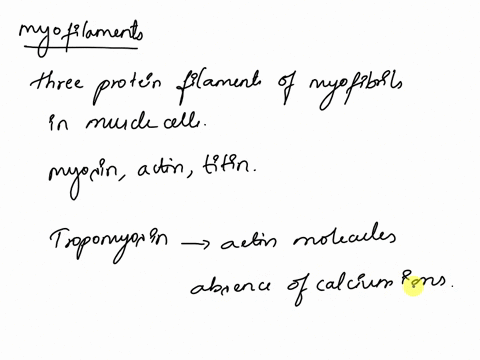 myofilaments
three protein filaments of myofibrils
in muscle cells.
myosin, actin, titin.
Tropomyosin → actin molecules
absence of calcium ions.